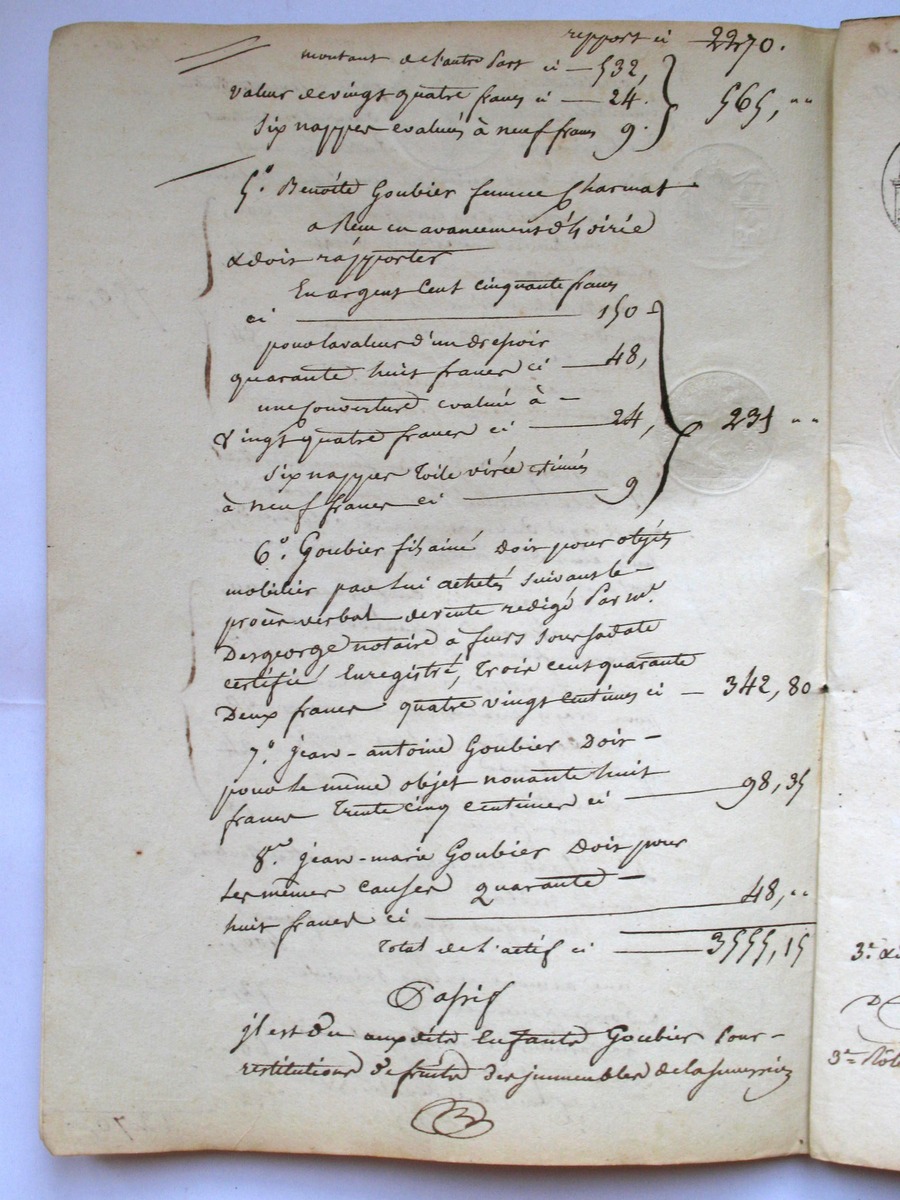 report ci — 2270.
montant de l'autre Part ci — 532,
valeur de vingt quatre francs ci — 24. 565, "
Six nappes evalués à neuf francs 9.
5.° Benoite Goubier femme Charmat
a Reçu en avancement d'hoirie
& doit rapporter
En argent Cent cinquante francs
ci — 150
pour la valeur d'un
quarante huit francs ci — 48,
une Couverture evalué à —
Vingt quatre francs ci — 24, 231 "
Six nappes toile virée estimés
à neuf francs ci — 9
6.° Goubier fils ainé doit pour objets
mobilier par lui achetés suivant le —
procès verbal de vente redigé Par m.e
Desgeorge notaire a feurs sous sa date
certifié Enregistré, trois cent quarante
Deux francs quatre vingt centimes ci — 342, 80
7.° jean - antoine Goubier Doit —
pour le même objet nonante huit
francs trente cinq centimes ci — 98, 35
8.° jean - marie Goubier Doit pour
les mêmes causes quarante —
huit francs ci — 48, "
Total de l'actif ci — 3555, 15
Passif
jl est Du aux dits Enfants Goubier Pour —
restitutions de fruits des jmmeubles de la succession
3.e
3.e Rôle